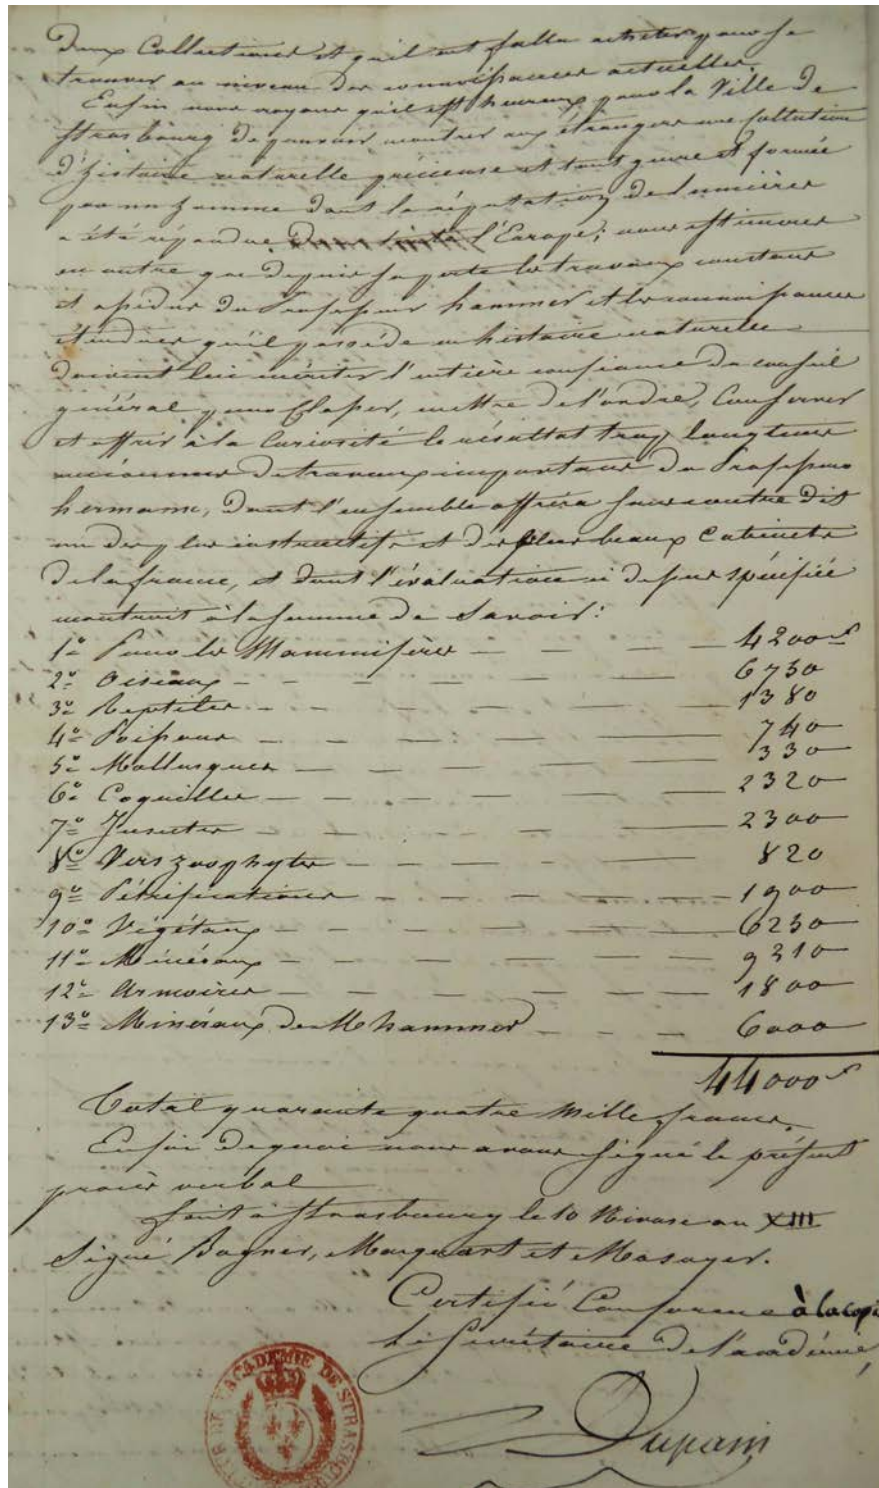 deux Collections et qu'il eut fallu acheter pour se
trouver au niveau des connoissances actuelles.
Enfin nous croyons qu'il est heureux pour la Ville de
Strasbourg de pouvoir montrer aux étrangers une collection
d'histoire naturelle précieuse et tout genre et formée
par un homme dont la réputation de lumières
a été répandue dans toute l'Europe; nous estimons
en outre que depuis sa perte les travaux constans
et assidus du Professeur hammer et les connoissances
étendues qu'il possède en histoire naturelle
doivent lui mériter l'entière confiance du conseil
général pour Classer, mettre de l'ordre, Conserver
et offrir à la Curiosité le résultat trop longtems
méconnu de travaux importans du Professeur
hermann, dont l'ensemble offrira sans contre dit
un des plus instructifs et des plus beaux Cabinets
de la france, et dont l'évaluation ci dessus spécifiée
montroit à la somme de Savoir:
1° Pour les Mammifères — — — 4200f
2° Oiseaux — — — — — — 6750
3° Reptiles — — — — — — 1380
4° Poissons — — — — — — 740
5° Mollusques — — — — — 330
6° Coquilles — — — — — 2320
7° Insectes — — — — — 2300
8° Vers zoophytes — — — — 820
9° Pétrifications — — — — 1900
10° Végétaux — — — — — 6250
11° Minéraux — — — — — 9310
12° Armoires — — — — — 1800
13° Minéraux de M hammer — — 6000
44000f
Total quarante quatre Mille francs.
En foi de quoi nous avons signé le présent
procès verbal
fait à Strasbourg le 10 Nivose an XIII
Signé Bogner, Marquart et Masuyer.
Certifié Conforme à la copie
Le Secrétaire de l'académie,
Dupain
ACADÉMIE DE STRASBOURG